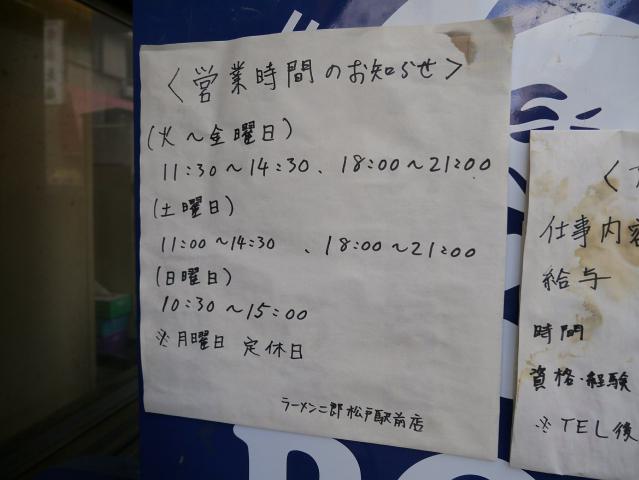 〈営業時間のお知らせ〉
(火～金曜日)
11:30～14:30、18:00～21:00
(土曜日)
11:00～14:30、18:00～21:00
(日曜日)
10:30～15:00
※月曜日 定休日
ラーメン二郎松戸駅前店
仕事内容
給与
時間
資格・経験
※TEL後